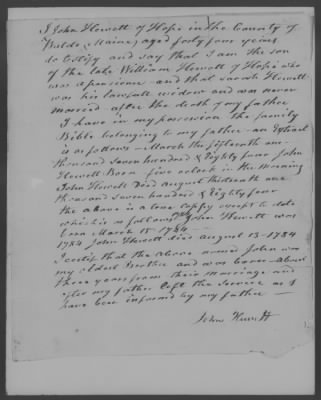 I John Hewett of Hope in the County of
Waldo & Maine, aged forty four years
do testify and say that I am the son
of the late William Hewett of Hope who
was a pensioner and that Sarah Hewett
was his lawfull widow and was never
married after the death of my father
I have in my possession the family
Bible belonging to my father - an Extract
is as follows - March the fifteenth one
thousand seven hundred & Eighty four John
Hewett Born five oclock in the morning
John Hewett Died August thirteenth one
thousand seven hundred & Eighty four
the above is a true coppy except to date
which is as follows John Hewett was
born March 15 1784
1784 John Hewett died August 13 - 1784
I certify that the above named John was
my oldest Brother and was born about
three years from their marriage and
after my father left the service as I
have been informed by my father
John Hewett